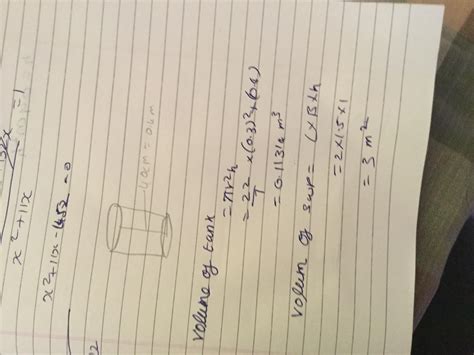 x² + 11x = 1
x² + 11x - 1452 = 0
40cm = 0.4m
Volume of tank
= πr²h
= 22/7 x (0.3)² x (0.4)
= 0.1131 m³
Volum of swp = L x B x h
= 2 x 1.5 x 1
= 3 m²